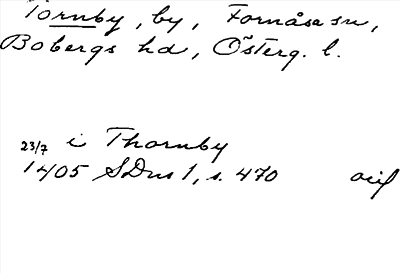 Tornby, by, Fornåsa sn,
Bobergs hd, Österg. l.
23/7 i Thornby
1405 SDns 1, s. 470